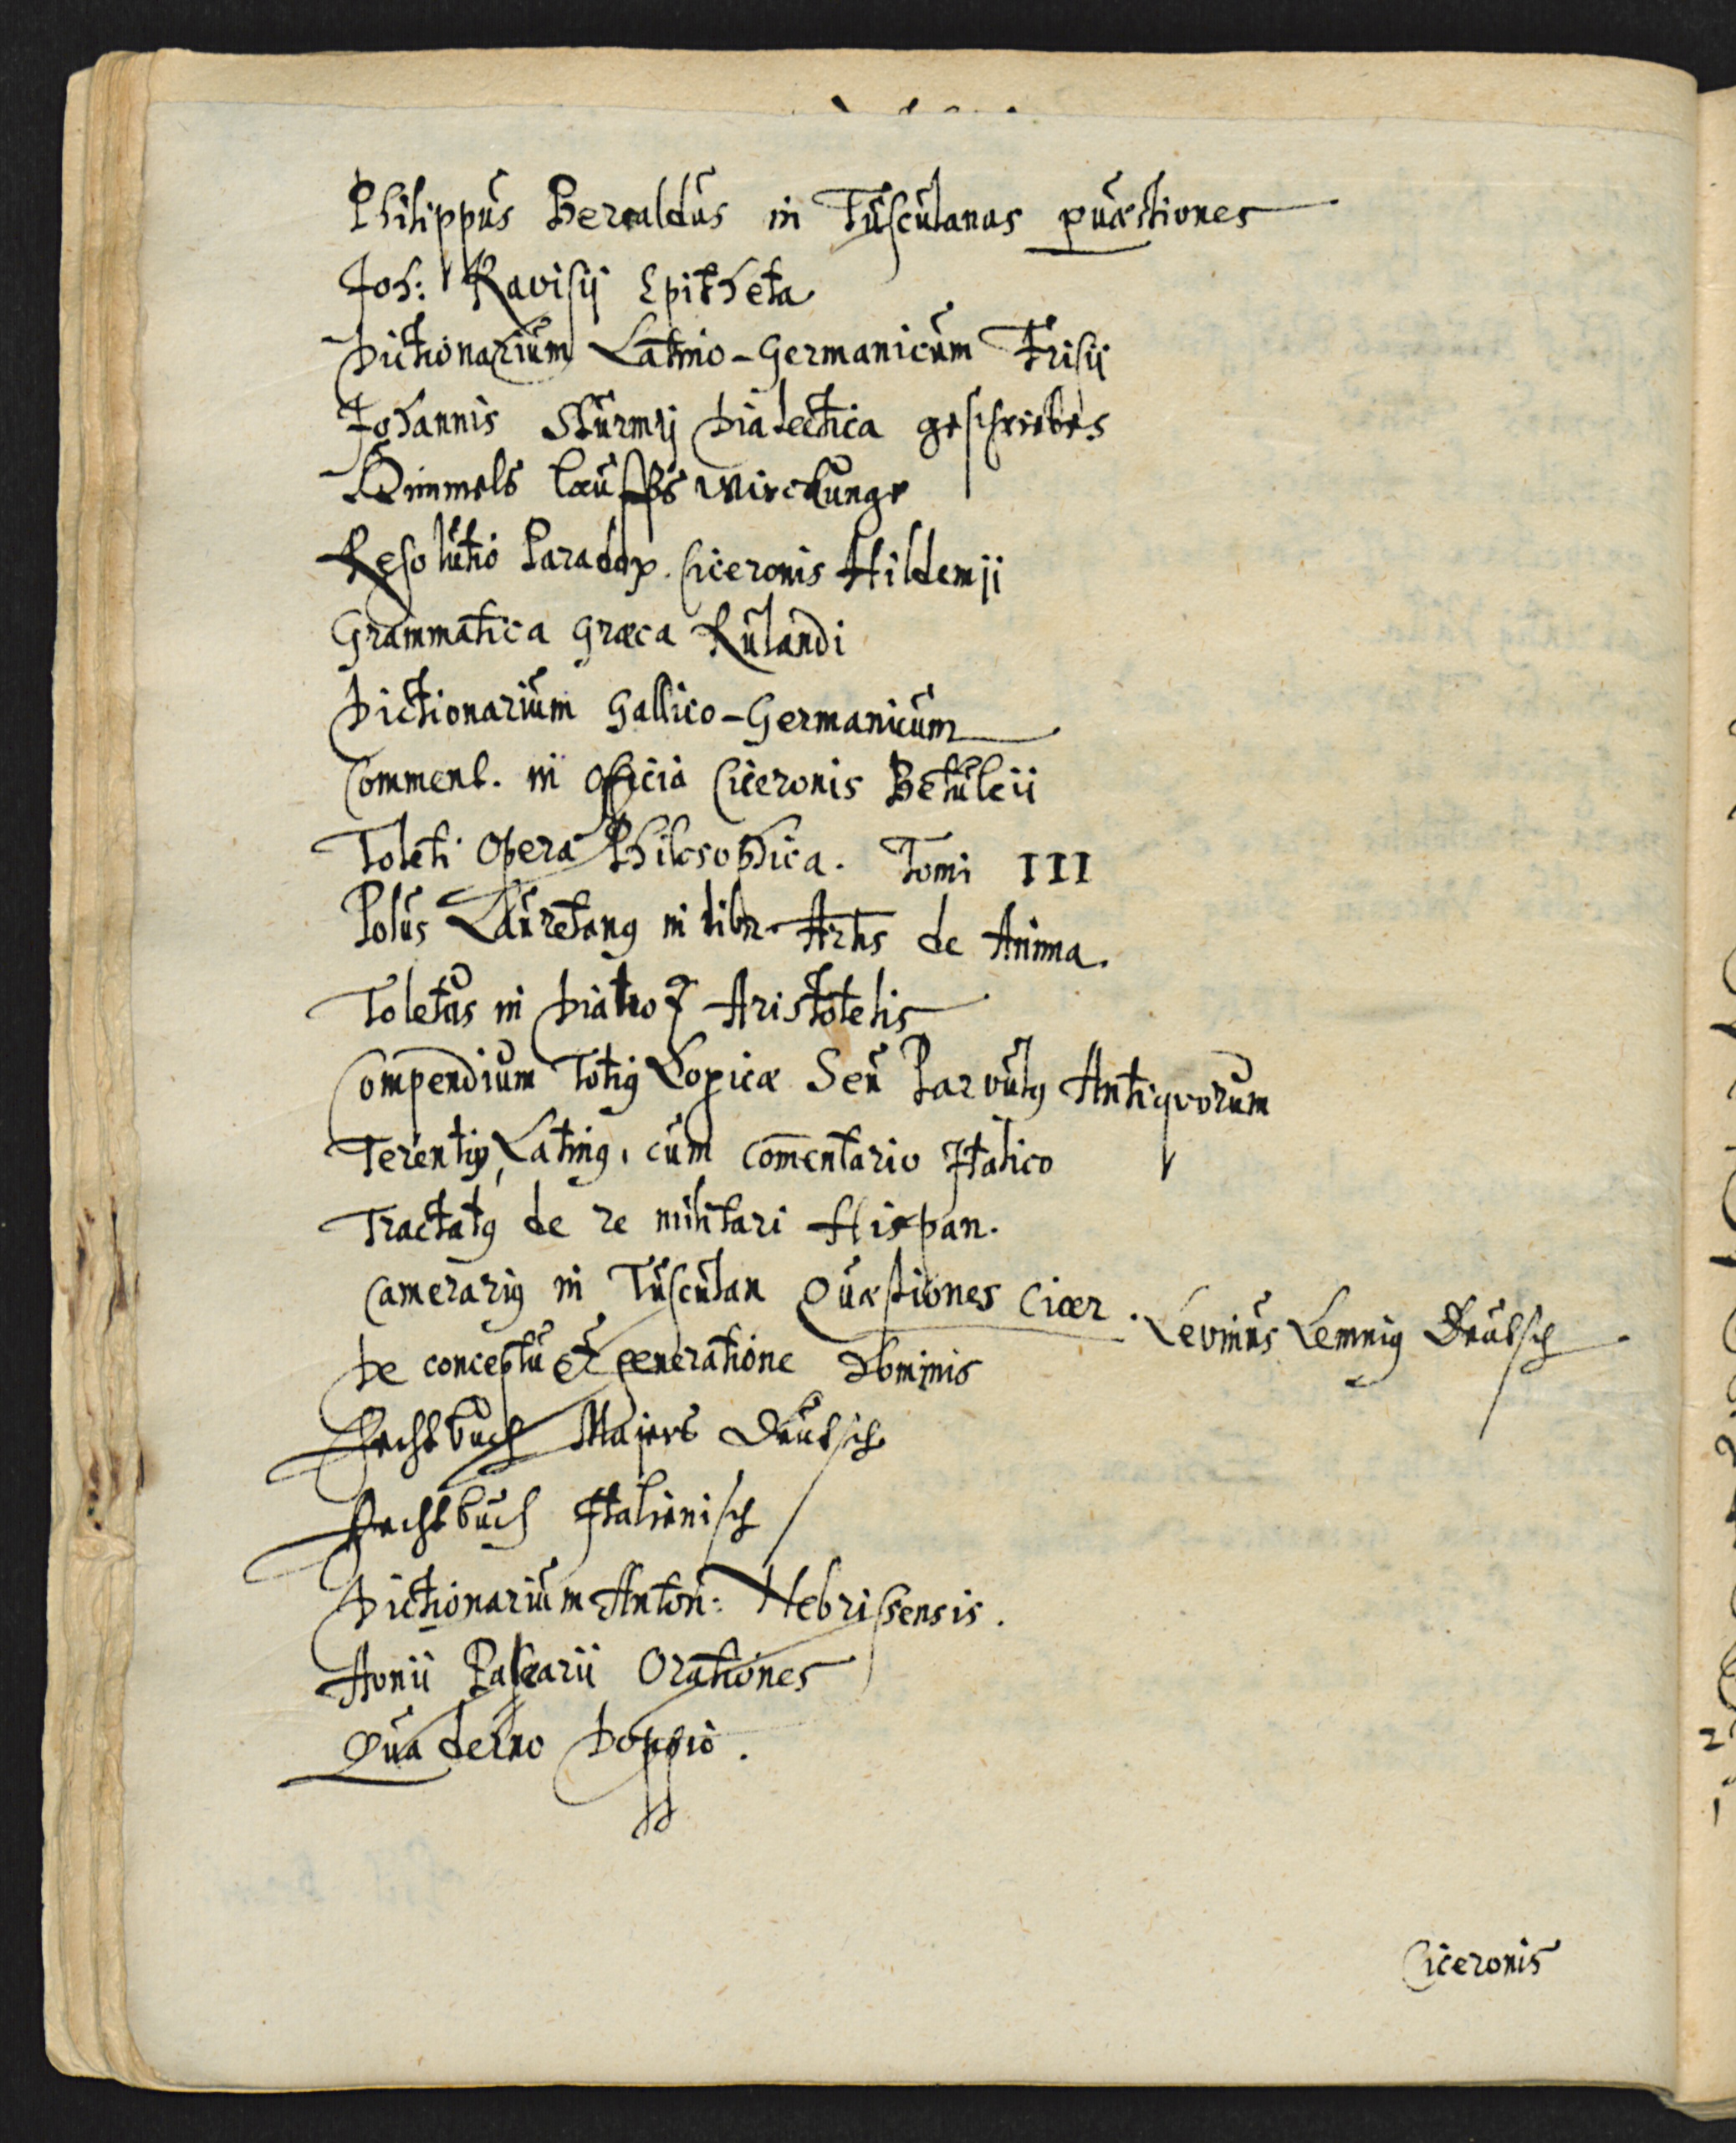 Philippus Beroaldus in Tusculanas quæstiones
Joh: Ravisij Epitheta
Dictionarium Latino-Germanicum Frisij
Johannis Sturmij Dialectica geschrieben
Himmels lauffs wirckunge
Resolutio Paradox. Ciceronis Hildenij
Grammatica Græca Rulandi
Dictionarium Gallico-Germanicum
Comment. in officia Ciceronis Betuleii
Toleti Opera Philosophica. Tomi III
Polus Lauretanꝯ in libr. Artis de Anima.
Toletus in Aristotelis
Compendium Totiꝯ Logicæ Seu Parvulꝯ Antiqvorum
Terentiꝯ, Latinꝯ, cum com̄entario Italico
Tractatꝯ de re militari Hispan.
Camerariꝯ in Tusculan Quæstiones Cicer.
De conceptu et generatione Hominis Levinus Lemniꝯ Deutsch
Fechtbuch Majers Deutsch
Fechtbuch Italienisch
Dictionarium Anton: Nebrissensis.
Aonii Palearii Orationes
Quaderno Doppio.
Ciceronis